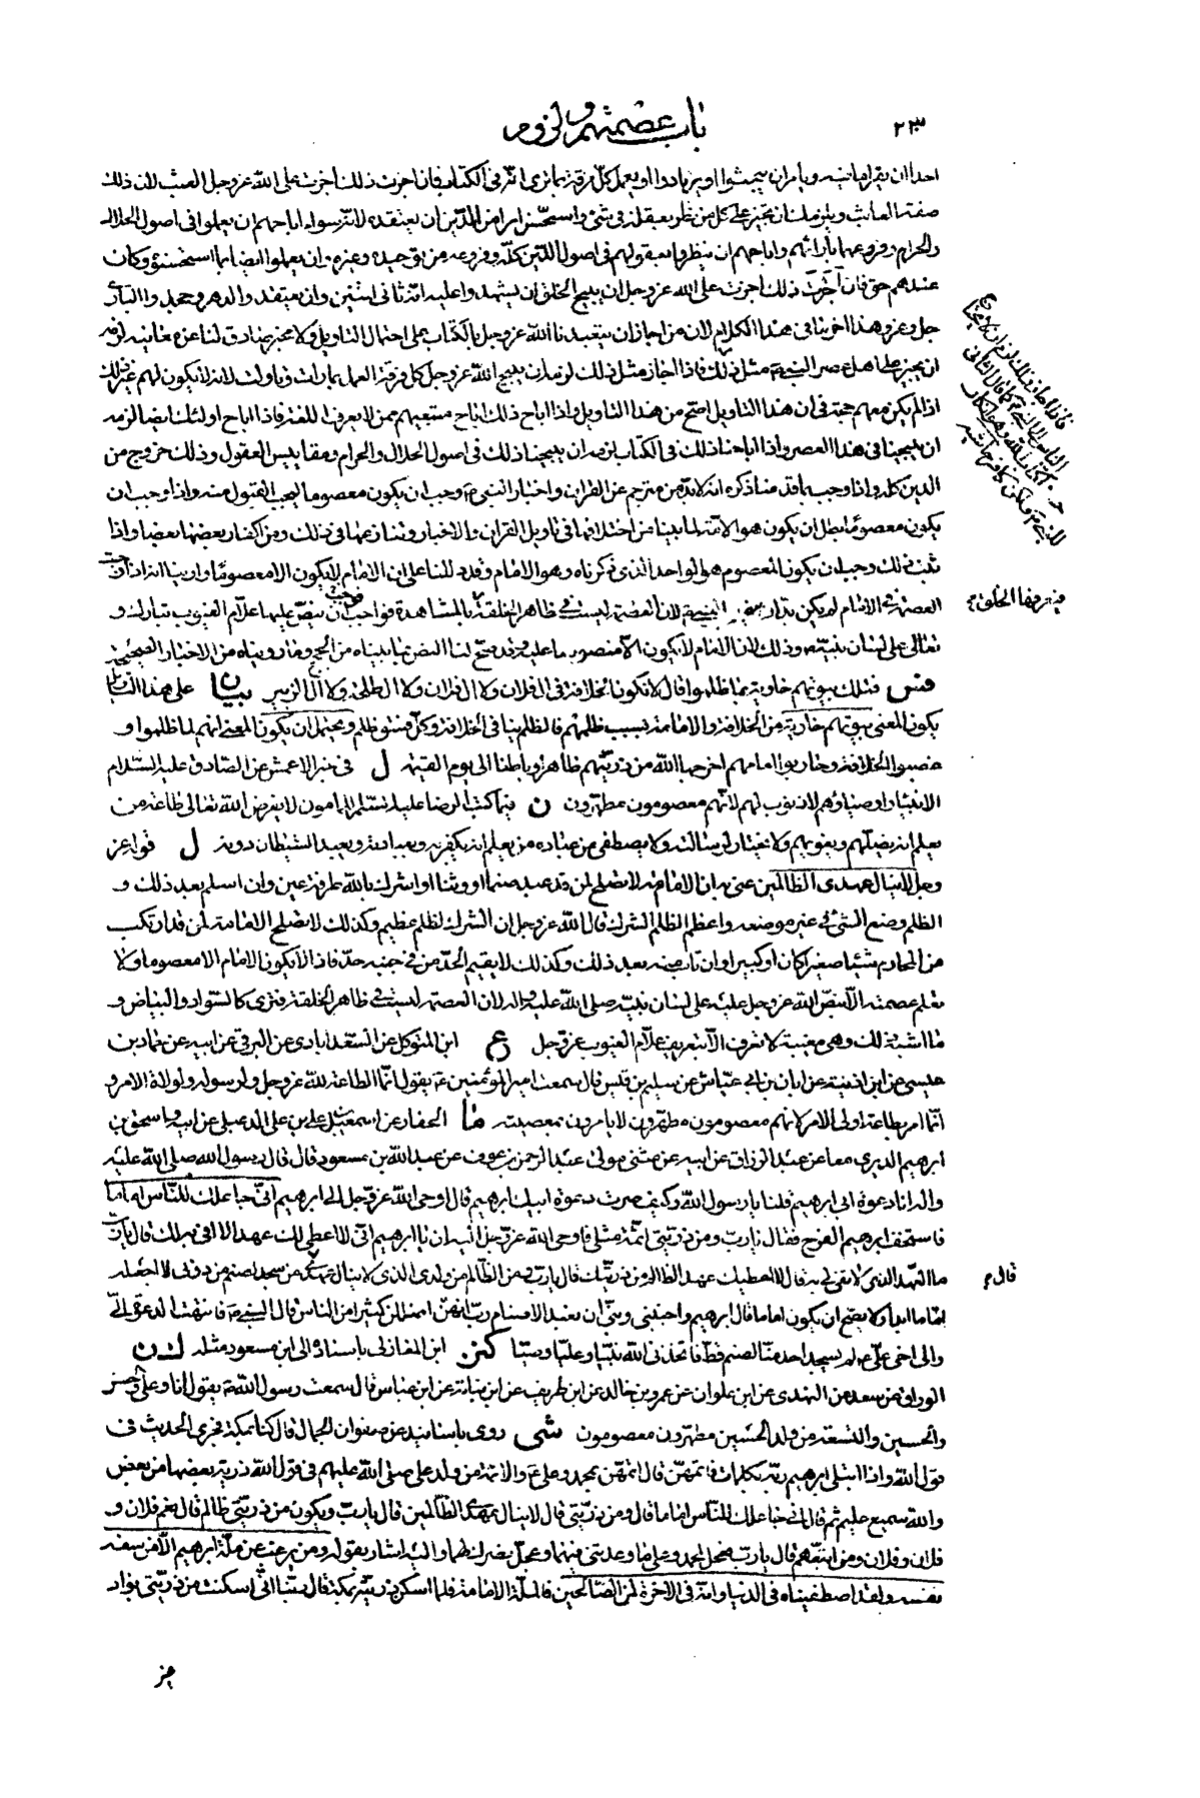 باب عصمتهم و لزوم
٢٣٠
صفة العابث ويلزمك ان تجيز على كل من نظر بعقله في شئ واستحسن امرا من الدين ان يعتقده لانه سواء اباحهم ان يعملوا في اصول الحلال
والحرام وفروعهما بآرائهم واباحهم ان ينظروا بعقولهم في اصول الدين كله وفروعه من توحيده وغيره وان يعملوا ايضا بما استحسنوه وكان
عندهم حق فان اجزت ذلك اجزت على الله عز وجل ان يبيح الخلق ان يشهدوا عليه انه ثاني اثنين وان يعتقدوا الدهر وجحدوا البارئ
جل وعز وهذا آخر ما في هذا الكلام لان من اجاز ان يتعبدنا الله عز وجل بالكتاب على احتمال التاويل ولا مخبر صادق لنا عن معانيه لزمه
ان يجيز على اهل عصر النبي ص مثل ذلك فاذا اجاز مثل ذلك لزمه ان يبيح الله عز وجل كل فرقة العمل بما رات وتاولت لانه لا يكون لهم غير ذلك
اذا لم يكن معهم حجة في ان هذا التاويل اصح من هذا التاويل واذا اباح ذلك اباح متبعيهم ممن لا يعرف اللغة فاذا اباح اولئك ايضا لزمه
ان يبيحنا في هذا العصر واذا اباحنا ذلك في الكتاب لزمه ان يبيحنا ذلك في اصول الحلال والحرام ومقاييس العقول وذلك خروج من
الدين كله واذا وجب بما قدمنا ذكره انه لا بد من مترجم عن القران واخبار النبي ص وجب ان يكون معصوما ليجب القبول منه واذا وجب ان
يكون معصوما بطل ان يكون هو الامة لما بينا من اختلافها في تاويل القران والاخبار وتنازعها في ذلك ومن اكفار بعضها بعضا واذا
ثبت ذلك وجب ان يكون المعصوم هو الواحد الذي ذكرناه وهو الامام وقد دللنا على ان الامام لا يكون الا معصوما وارينا انه اذا وجبت
العصمة في الامام لم يكن بد ان ينص النبي ص لان العصمة ليست في ظاهر الخلقة بالمشاهدة فواجب ان ينص عليها علام الغيوب تبارك و
فيعرفها الخلق
تعالى على لسان نبيه ص وذلك لان الامام لا يكون الا منصوصا عليه وقد صح لنا النص بما بيناه من الحجج وما رويناه من الاخبار الصحيحة
فس فتلك بيوتهم خاوية بما ظلموا قال لا تكون الخلافة في آل فلان ولا آل فلان ولا آل فلان ولا آل طلحة ولا آل الزبير بيان على هذا التاويل
يكون المعنى بيوتهم خاوية من الخلافة والامامة بسبب ظلمهم فالظلم ينافي الخلافة وكل فسق ظلم ويحتمل ان يكون المعنى انهم لما ظلموا و
غصبوا الخلافة وحاربوا امامهم اخرجها الله من ذريتهم ظاهرا وباطنا الى يوم القيمة ل في خبر الاعمش عن الصادق عليه السلام
الانبياء واوصياؤهم لا ذنوب لهم لانهم معصومون مطهرون ن فيما كتب الرضا عليه السلم للمامون لا يفرض الله تعالى طاعة من
يعلم انه يضلهم ويغويهم ولا يختار لرسالته ولا يصطفي من عباده من يعلم انه يكفر به وبعبادته ويعبد الشيطان دونه ل قوله عز
وجل لا ينال عهدي الظالمين عنى به ان الامامة لا تصلح لمن قد عبد صنما او وثنا او اشرك بالله طرفة عين وان اسلم بعد ذلك و
الظلم وضع الشئ في غير موضعه واعظم الظلم الشرك قال الله عز وجل ان الشرك لظلم عظيم وكذلك لا تصلح الامامة لمن قد ارتكب
من المحارم شيئا صغيرا كان او كبيرا وان تاب منه بعد ذلك وكذلك لا يقيم الحد من في جنبه حد فاذا لا يكون الامام الا معصوما ولا
تعلم عصمته الا بنص الله عز وجل عليه على لسان نبيه صلى الله عليه واله لان العصمة ليست في ظاهر الخلقة فترى كالسواد والبياض و
ما اشبه ذلك وهي مغيبة لا تعرف الا بتعريف علام الغيوب عز وجل ع ابن المتوكل عن السعدابادي عن البرقي عن ابيه عن حماد بن
عيسى عن ابن اذينة عن ابان بن ابي عياش عن سليم بن قيس قال سمعت امير المؤمنين ع يقول انما الطاعة لله عز وجل ولرسوله ولولاة الامر و
انما امر بطاعة اولي الامر لانهم معصومون مطهرون لا يامرون بمعصيته ما الحفار عن اسمعيل بن علي الدعبلي عن ابيه واسحق بن
ابرهيم الدبري معا عن عبد الرزاق عن ابيه عن مثنى مولى عبد الرحمن بن عوف عن عبد الله بن مسعود قال قال رسول الله صلى الله عليه
واله انا دعوة ابي ابرهيم قلنا يا رسول الله وكيف صرت دعوة ابيك ابرهيم قال اوحى الله عز وجل الى ابرهيم اني جاعلك للناس اماما
فاستخف ابرهيم الفرح فقال يا رب ومن ذريتي ائمة مثلي فاوحى الله عز وجل اليه ان يا ابرهيم اني لا اعطيك عهدا لا افي به لك قال يا رب
ما العهد الذي لا تفي لي به قال لا اعطيك عهدا لظالم من ذريتك قال يا رب ومن الظالم من ولدي الذي لا ينال عهدك من سجد لصنم من دوني لا اجعله
قال
اماما ابدا ولا يصح ان يكون اماما قال ابرهيم واجنبني وبني ان نعبد الاصنام رب انهن اضللن كثيرا من الناس قال النبي ص فانتهت الدعوة الي
والى اخي علي ع لم يسجد احد منا لصنم قط فاتخذني الله نبيا وعليا وصيا كنز ابن المغازلي باسناده الى ابن مسعود مثله ك ن
الوراق عن سعد عن النهدي عن ابن علوان عن عمرو بن خالد عن ابن طريف عن ابن نباتة عن ابن عباس قال سمعت رسول الله ص يقول انا وعلي والحسن
والحسين والتسعة من ولد الحسين مطهرون معصومون شى روى باسانيد عن صفوان الجمال قال كنا بمكة فجرى الحديث في
قول الله واذ ابتلى ابرهيم ربه بكلمات فاتمهن قال اتمهن بمحمد وعلي ع والائمة من ولد علي صلى الله عليهم في قول الله ذرية بعضها من بعض
والله سميع عليم ثم قال اني جاعلك للناس اماما قال ومن ذريتي قال لا ينال عهدي الظالمين قال يا رب ويكون من ذريتي ظالم قال نعم فلان و
فلان وفلان ومن اتبعهم قال يا رب فعجل لمحمد وعلي ما وعدتني فيهما وعجل نصرك لهما واليه اشار بقوله ومن يرغب عن ملة ابرهيم الا من سفه
نفسه ولقد اصطفيناه في الدنيا وانه في الاخرة لمن الصالحين فالملة الامامة فلما اسكن ذريته بمكة قال ربنا اني اسكنت من ذريتي بواد